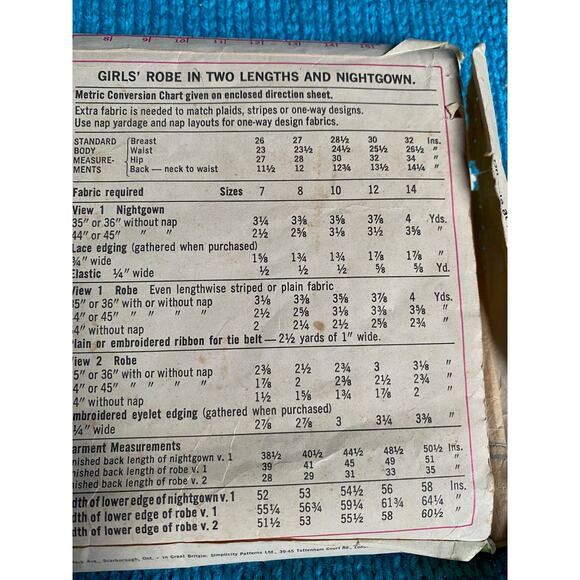 8| 9| 10| 11| 12 13| 14| 15|
GIRLS' ROBE IN TWO LENGTHS AND NIGHTGOWN.
Metric Conversion Chart given on enclosed direction sheet.
Extra fabric is needed to match plaids, stripes or one-way designs.
Use nap yardage and nap layouts for one-way design fabrics.
STANDARD Breast 26 27 28½ 30 32 Ins.
BODY Waist 23 23½ 24½ 25½ 26½ "
MEASURE- Hip 27 28 30 32 34 "
MENTS Back — neck to waist 11½ 12 12¾ 13½ 14¼ "
Fabric required Sizes 7 8 10 12 14
View 1 Nightgown
35" or 36" without nap 3¼ 3⅜ 3⅝ 3⅞ 4 Yds.
44" or 45" " " 2½ 2⅝ 3⅛ 3½ 3⅝ "
Lace edging (gathered when purchased)
¾" wide 1⅝ 1¾ 1¾ 1⅞ 1⅞ "
Elastic ¼" wide ½ ½ ½ ⅝ ⅝ Yd.
View 1 Robe Even lengthwise striped or plain fabric
35" or 36" with or without nap 3⅛ 3⅜ 3⅝ 3⅞ 4 Yds.
4" or 45" " " " " 2½ 2⅝ 3⅛ 3⅜ 3⅝ "
4" without nap 2 2¼ 2½ 2⅝ 2¾ "
Plain or embroidered ribbon for tie belt — 2½ yards of 1" wide.
iew 2 Robe
5" or 36" with or without nap 2⅜ 2½ 2¾ 3 3⅛ "
4" or 45" " " " " 1⅞ 2 2⅜ 2½ 2¾ "
4" without nap 1½ 1⅝ 1¾ 1⅞ 2 "
mbroidered eyelet edging (gathered when purchased)
¼" wide 2⅞ 2⅞ 3 3¼ 3⅜ "
arment Measurements
nished back length of nightgown v. 1 38½ 40½ 44½ 48½ 50½ Ins.
nished back length of robe v. 1 39 41 45 49 51 "
nished back length of robe v. 2 28 29 31 33 35 "
dth of lower edge of nightgown v. 1 52 53 54½ 56 58 Ins.
dth of lower edge of robe v. 1 55¼ 56¾ 59¼ 61¾ 64¼ "
dth of lower edge of robe v. 2 51½ 53 55½ 58 60½ "
Ave., Scarborough, Ont. • in Great Britain: Simplicity Patterns Ltd., 39-45 Tottenham Court Rd.,